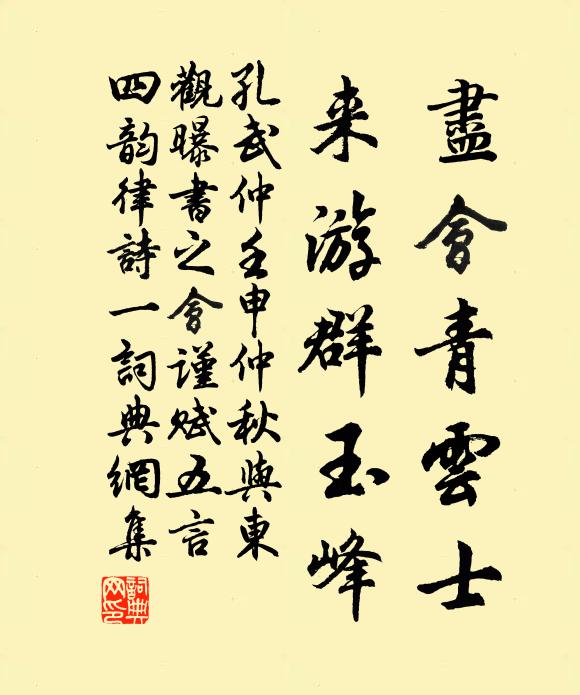 盡會青雲士
来游群玉峰
孔武仲壬申仲秋與東
觀曝書之會謹賦五言
四韵律詩一詞典網集
詞典網印